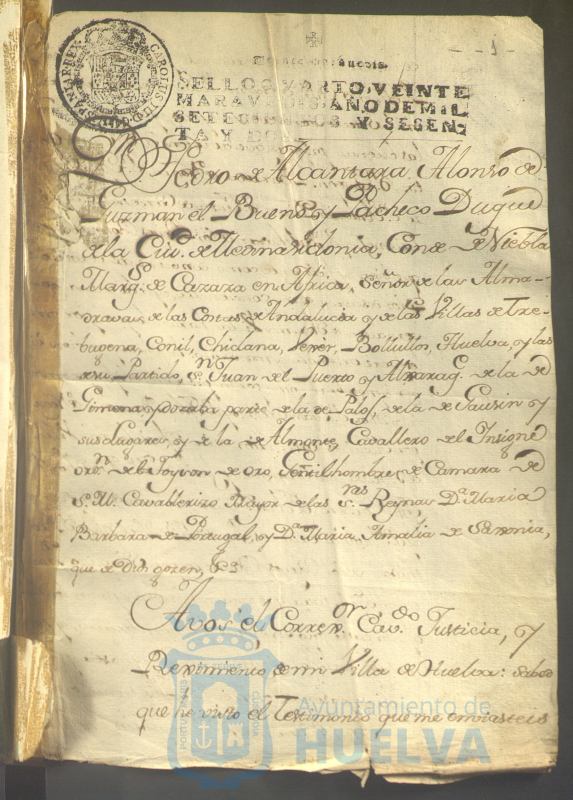 1
CAROLUS III D G HISPANIAR REX
SELLO QVARTO, VEINTE
MARAVEDIS, AÑO DE MIL
SETECIENTOS Y SESEN-
TA Y DOS
Dn Pedro de Alcantara Alonso de
Guzman el Bueno y Pacheco Duque
de la Ciud. de Medinasidonia, Conde de Niebla
Marqs. de Cazaza en Africa, Señor de las Alma-
dravas de las Costas de Andalucia y de las Villas de Tre-
bugena, Conil, Chiclana, Vexer, Bollullos, Huelva, y las
de su Partido, Sn Juan del Puerto y Alxaraq. de la de
Ximena y de la parte de la de Palos, de la de Gausin y
sus Lugares, y de la de Almonte, Cavallero del Insigne
Ordn. del Toyson de oro, Gentilhombre de Camara de
S. M. Cavallerizo Mayor de las Sras Reynas Da. Maria
Barbara de Portugal, y Da. Maria Amalia de Saxonia,
que de Dios gozen, &a
A vos el Corregr. Cavdo Justicia, y
Reximiento de mi Villa de Huelva: Sabed
que he visto el Testimonio que me embiasteis
Ayuntamiento de
HUELVA